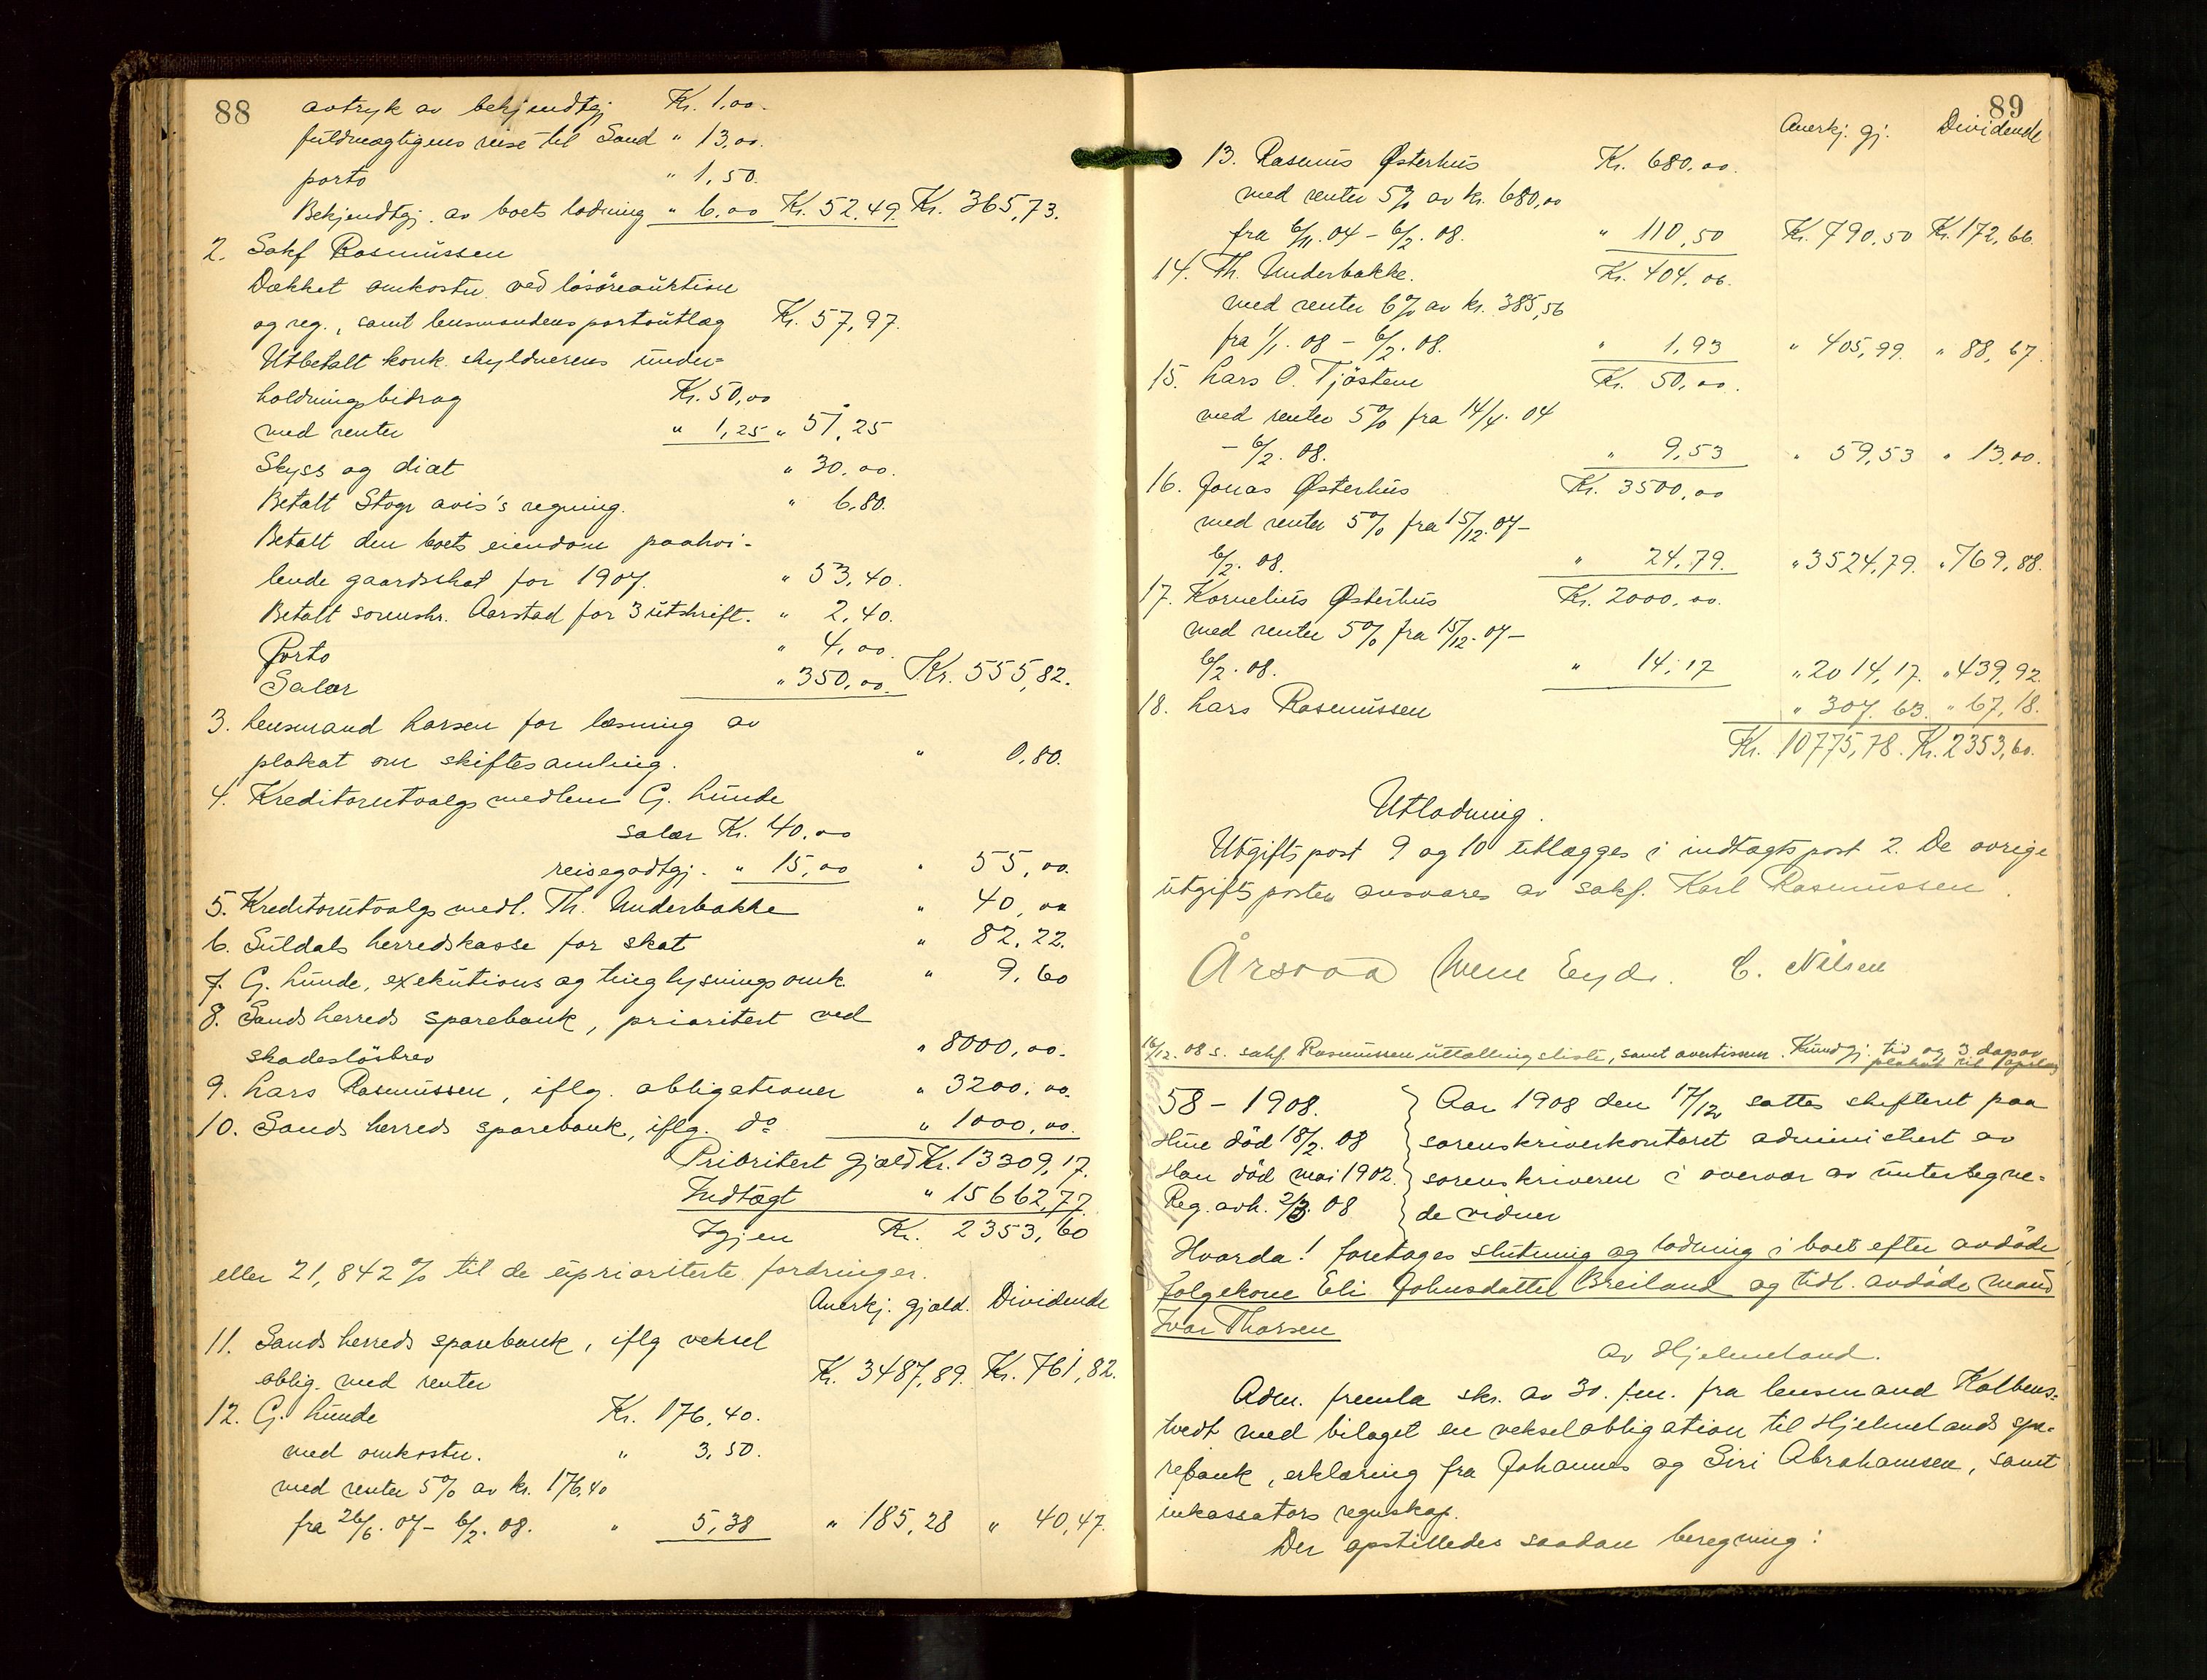 88
avtryk av bekjendtgj. Kr. 1,00.
fuldmægtigens reise til Sand " 13,00.
porto " 1,50.
Bekjendtgj. av boets lodning " 6,00 Kr. 52,49. Kr. 365,73.
2. Sakf Rasmussen
Dækket omkostn. ved løsøreauktion
og reg., samt lensmandens portoutlæg Kr. 57,97.
Utbetalt konk. skyldnerens under-
holdningsbidrag Kr. 50,00
med renter " 1,25 " 51,25
Skyss og diæt " 30,00.
Betalt Stvgr avis's regning. " 6,80.
Betalt den boets eiendom paahvi-
lende gaardsskat for 1907. " 53,40.
Betalt sorenskr. Aarstad for 3 utskrift. " 2,40.
Porto " 4,00.
Salær " 350,00. Kr. 555,82.
3. Lensmand Larsen for læsning av
plakat om skiftesamling. " 0,80.
4. Kreditorutvalgsmedlem G. Lunde
salær Kr. 40,00
reisegodtgj. " 15,00 " 55,00.
5. Kreditorutvalgsmedl. Th. Underbakke " 40,00
6. Suldals herredskasse for skat " 82,22.
7. G. Lunde, exekutions og tinglysningsomk. " 9,60
8. Sands herreds sparebank, prioritert ved
skadesløsbrev " 8000,00.
9. Lars Rasmussen, iflg. obligationer " 3200,00.
10. Sands herreds sparebank, iflg. do " 1000,00.
Prioritert gjæld Kr. 13309,17.
Indtægt " 15662,77.
Igjen Kr. 2353,60
eller 21,842 % til de uprioriterte fordringer.
Anerkj. gjæld. Dividende
11. Sands herreds sparebank, iflg veksel
oblig. med renter Kr. 3487,89. Kr. 761,82.
12. G. Lunde Kr. 176,40.
med omkostn. " 3,50.
med renter 5% av kr. 176,40
fra 26/6. 07 - 6/2. 08. " 5,38 " 185,28 " 40,47.
89
Anerkj. gj. Dividende
13. Rasmus Østerhus Kr. 680,00.
med renter 5% av kr. 680,00
fra 6/11. 04 - 6/2. 08. " 110,50 Kr. 790,50 Kr. 172,66.
14. Th. Underbakke. Kr. 404,06.
med renter 6% av kr. 385,56
fra 1/1. 08 - 6/2. 08. " 1,93 " 405,99. " 88,67.
15. Lars O. Tjøsten Kr. 50,00.
med renter 5% fra 14/4. 04
- 6/2. 08. " 9,53 " 59,53 " 13,00.
16. Jonas Østerhus Kr. 3500,00
med renter 5% fra 15/12. 07-
6/2. 08. " 24,79. " 3524,79. " 769,88.
17. Kornelius Østerhus Kr. 2000,00.
med renter 5% fra 15/12. 07-
6/2. 08. " 14,17 " 2014,17. " 439,92.
18. Lars Rasmussen " 307,63. " 67,18.
Kr. 10775,78. Kr. 2353,60.
Utlodning.
Utgiftspost 9 og 10 utlægges i indtægtspost 2. De øvrige
utgiftsposter ansvares av sakf. Karl Rasmussen.
C. Nilsen
16/12. 08 s. sakf Rasmussen uttællingsliste, samt avertissem. Kundgj. tid og 3 dage av
plakat til opslag
58 - 1908.
Hun død 18/2. 08
Han død mai 1902.
Reg. avh. 2/3. 08
Aar 1908 den 17/12 sattes skifteret paa
sorenskriverkontoret administrert av
sorenskriveren i overvær av undertegne-
de vidner
Hvorda! foretoges slutning og lodning i boet efter avdøde
følgekone Eli Johnsdatter Breiland og tidl. avdøde mand
Ivar Thorsen
av Hjelmeland.
Adm. fremla skr. av 30. f.m. fra lensmand Kolbens-
tvedt med bilaget en vekselobligation til Hjelmelands spa-
rebank, erklæring fra Johannes og Siri Abrahamsen, samt
inkassators regnskap.
Der opstilledes saadan beregning: